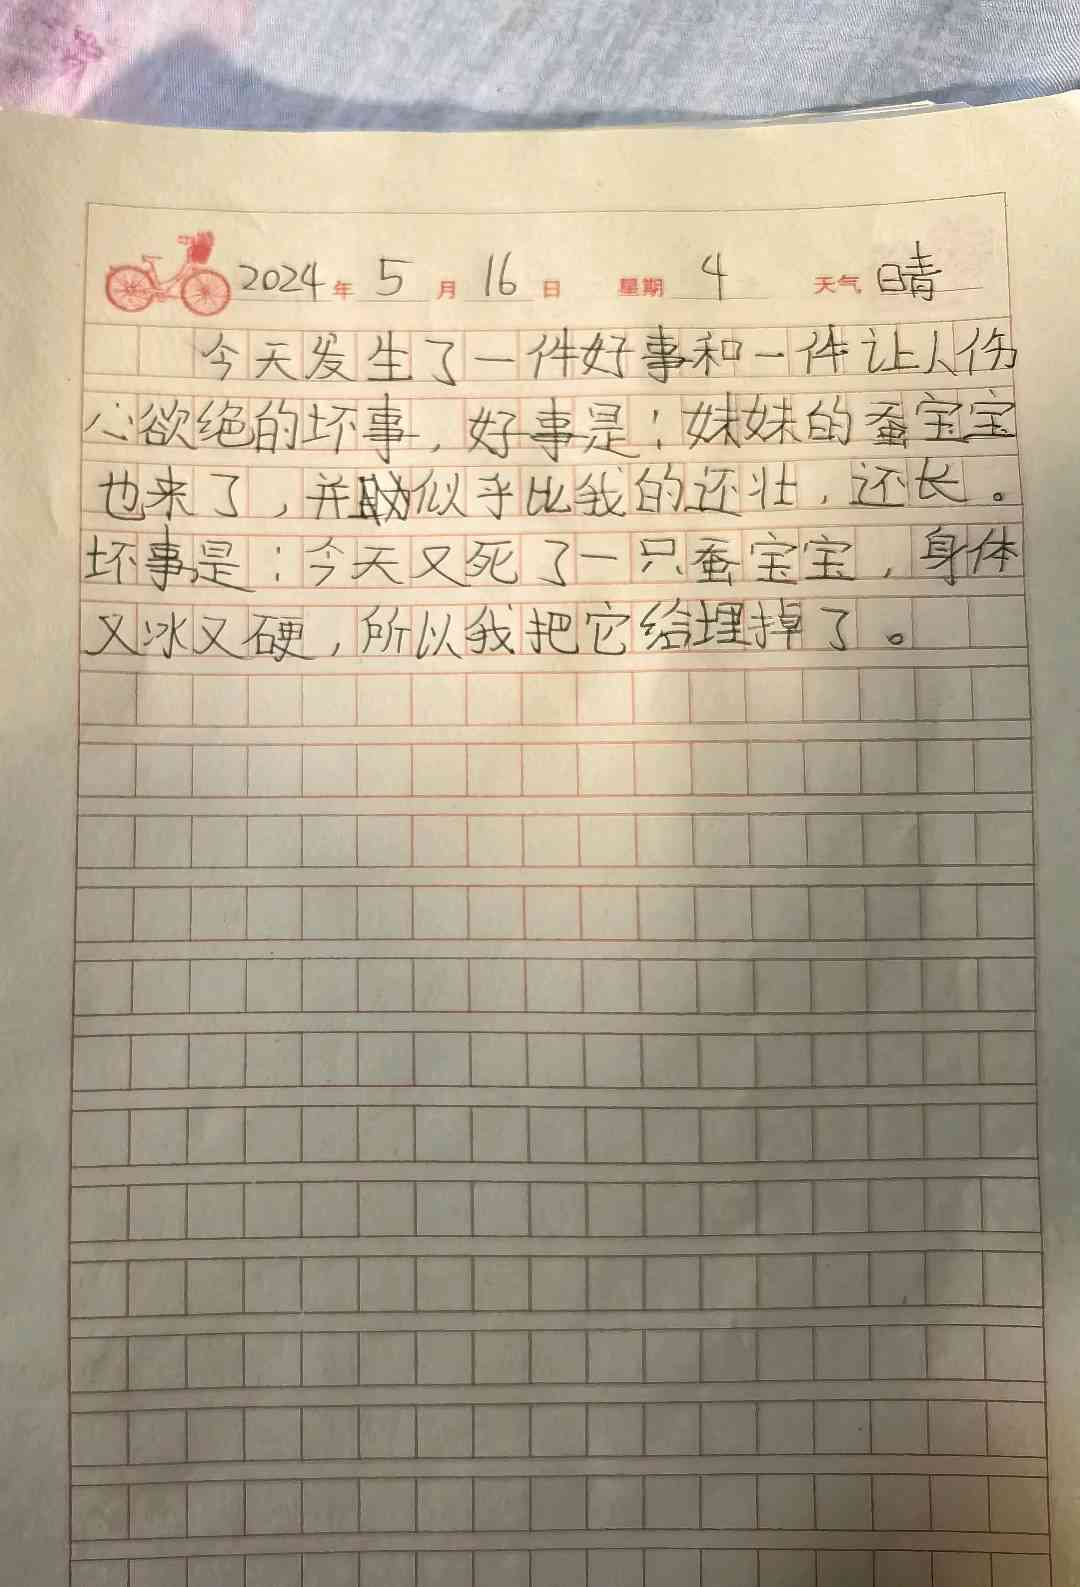 2024年 5月 16日 星期 4 天气 晴
今天发生了一件好事和一件让人伤
心欲绝的坏事，好事是：妹妹的蚕宝宝
也来了，并似乎比我的还壮，还长。
坏事是：今天又死了一只蚕宝宝，身体
又冰又硬，所以我把它给埋掉了。